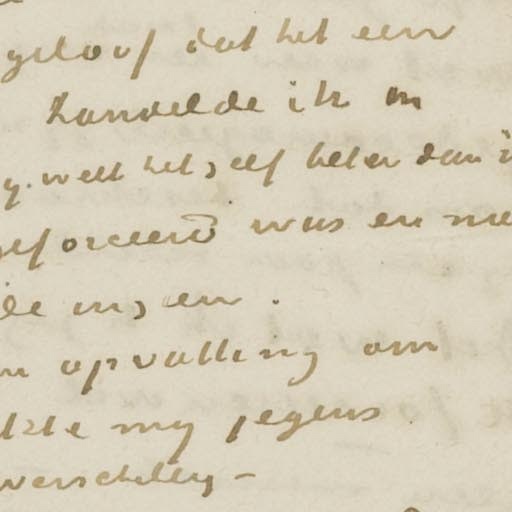 geloof dat het een
handelde ik in
gy weet het zelf beter dan
geforceerd was en
opvatting om
my jegens
verschilly -